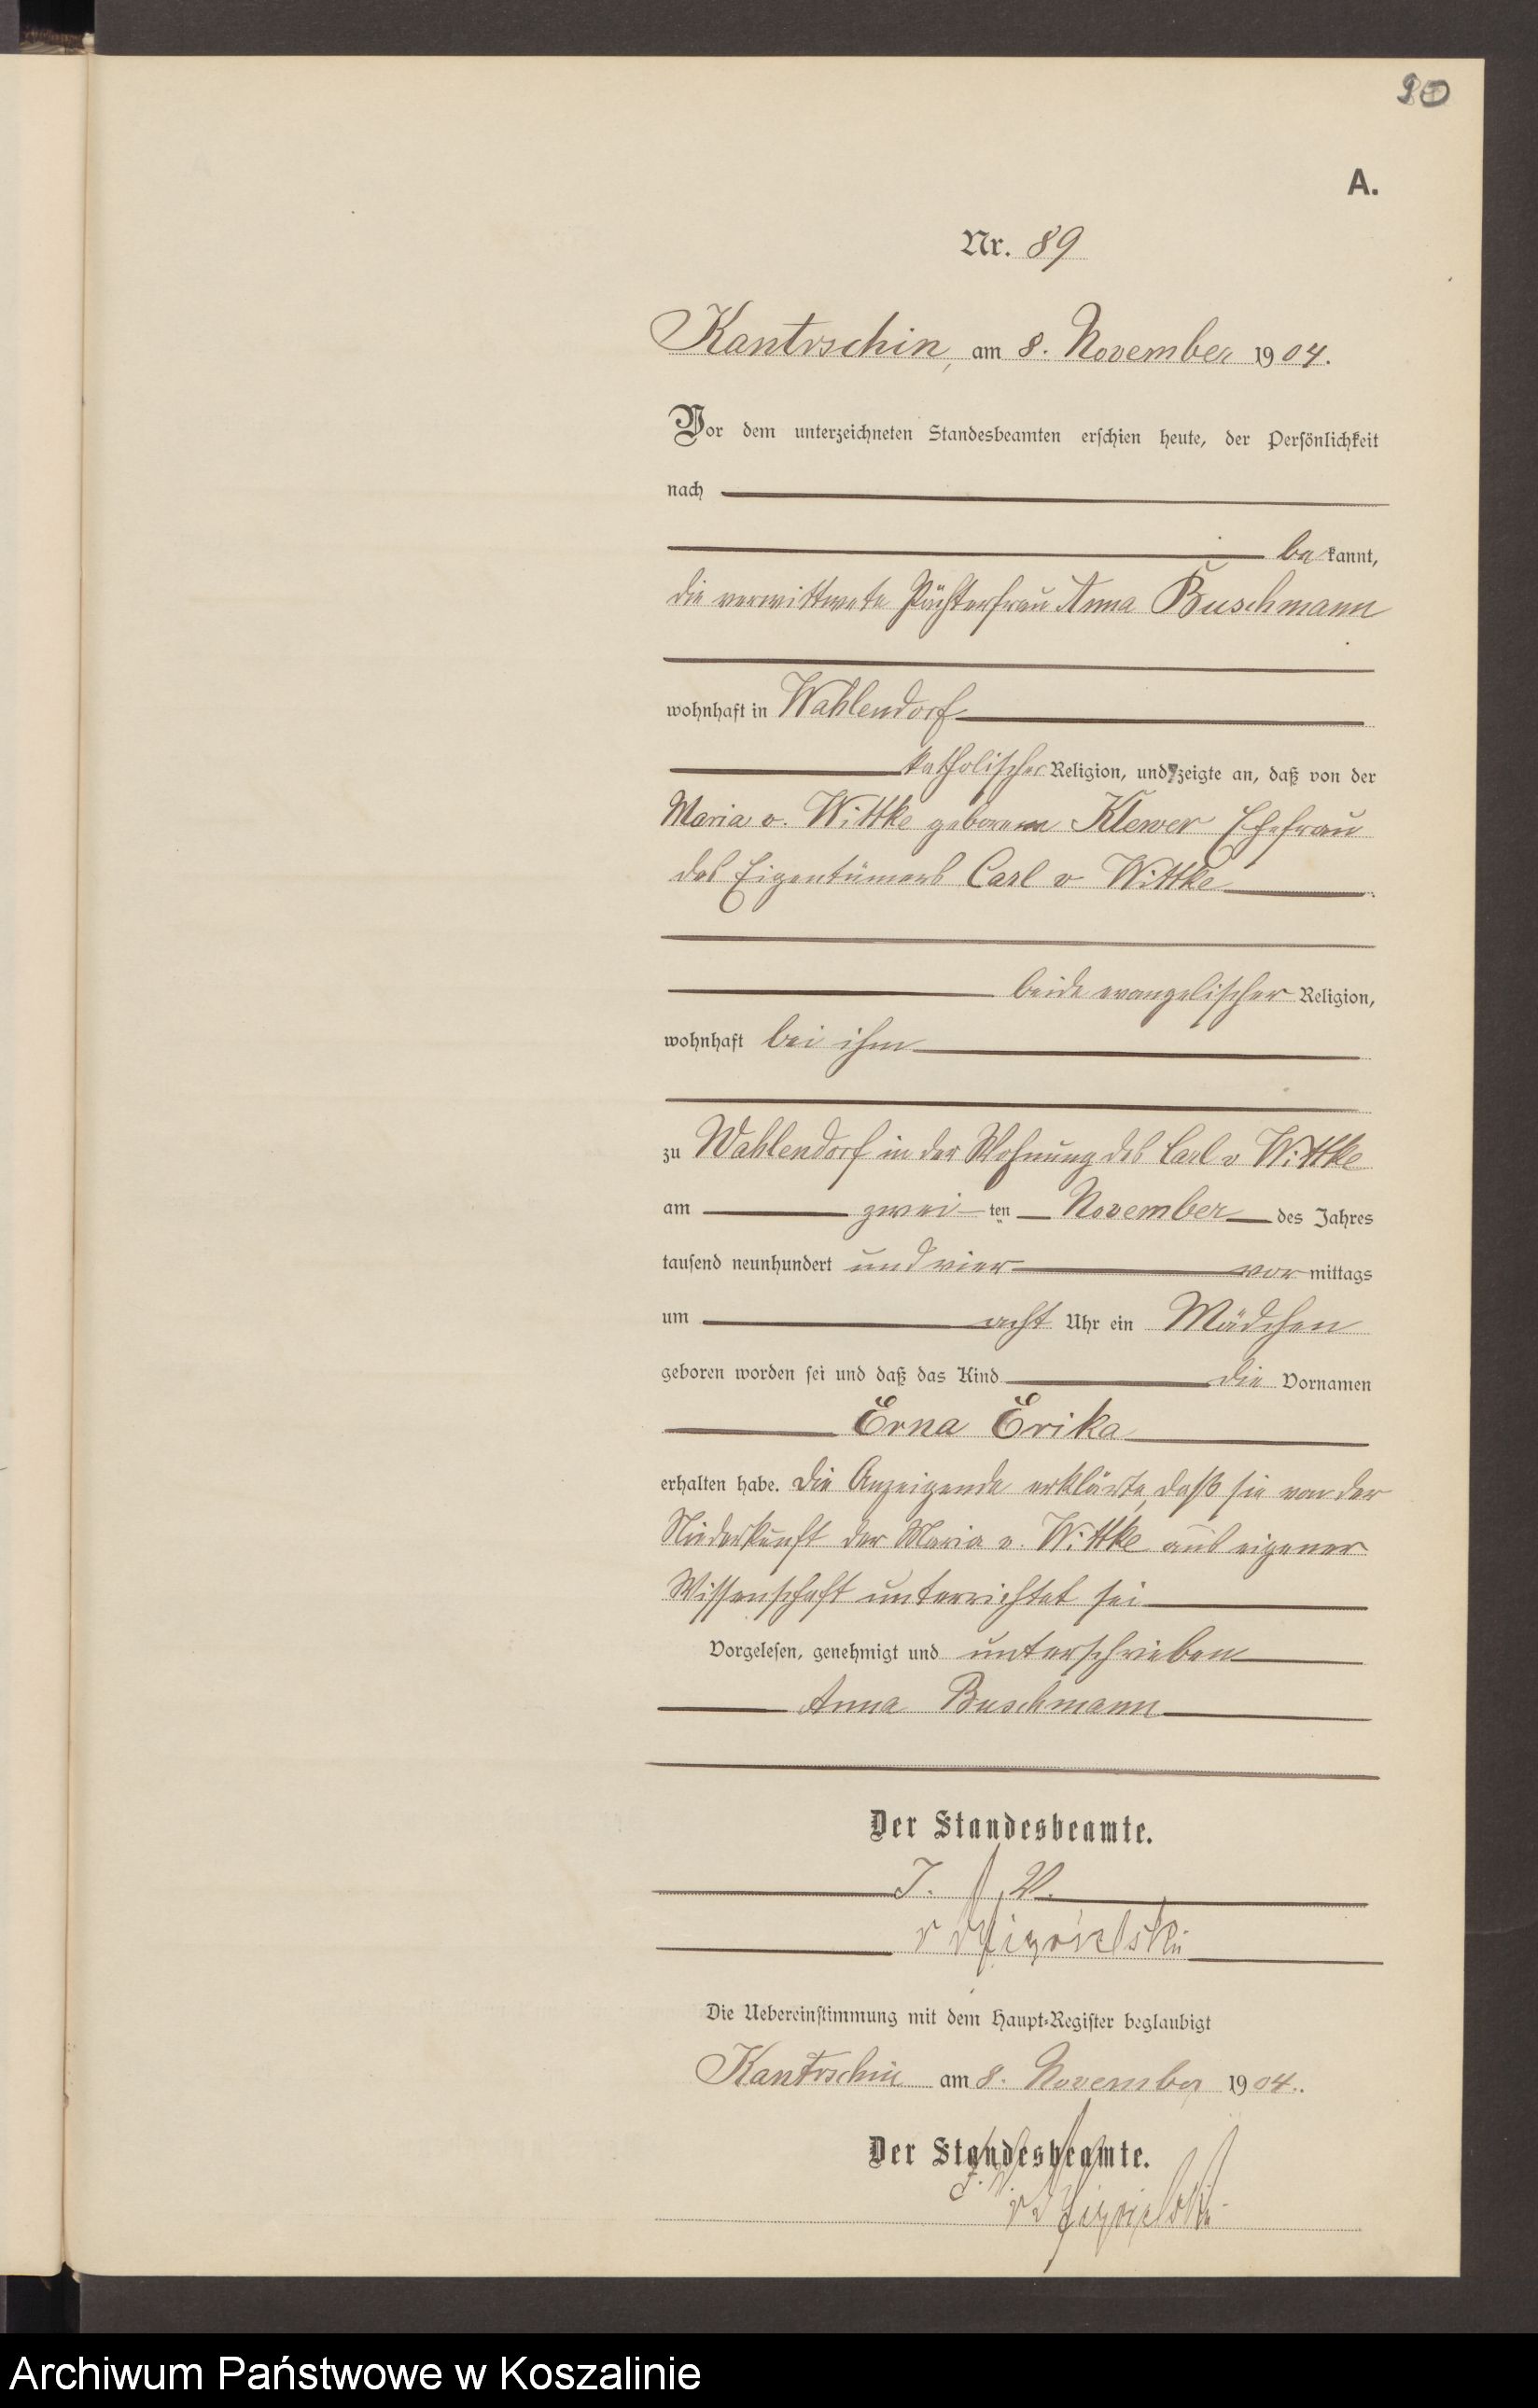 90
A.
Nr. 89
Kantrschin, am 8. November 1904.
Vor dem unterzeichneten Standesbeamten erschien heute, der Persönlichkeit
nach
be kannt,
die verwittwete Pächterfrau Anna Buschmann
wohnhaft in Wahlendorf
katholischer Religion, und zeigte an, daß von der
Maria v. Wittke geborenen Klewer Ehefrau
des Eigentümers Carl v Wittke
beide evangelischer Religion,
wohnhaft bei ihm
zu Wahlendorf in der Wohnung des Carl v Wittke
am zwei ten November des Jahres
tausend neunhundert und vier vor mittags
um acht Uhr ein Mädchen
geboren worden sei und daß das Kind die Vornamen
Erna Erika
erhalten habe. Die Anzeigende erklärte, daß sie von der
Niederkunft der Maria v. Wittke aus eigener
Wissenschaft unterrichtet sei
Vorgelesen, genehmigt und unterschrieben
Anna Buschmann
Der Standesbeamte.
J. V.
Die Uebereinstimmung mit dem Haupt-Register beglaubigt
Kantrschin am 8. November 1904.
Der Standesbeamte.
J. V.
Archiwum Państwowe w Koszalinie